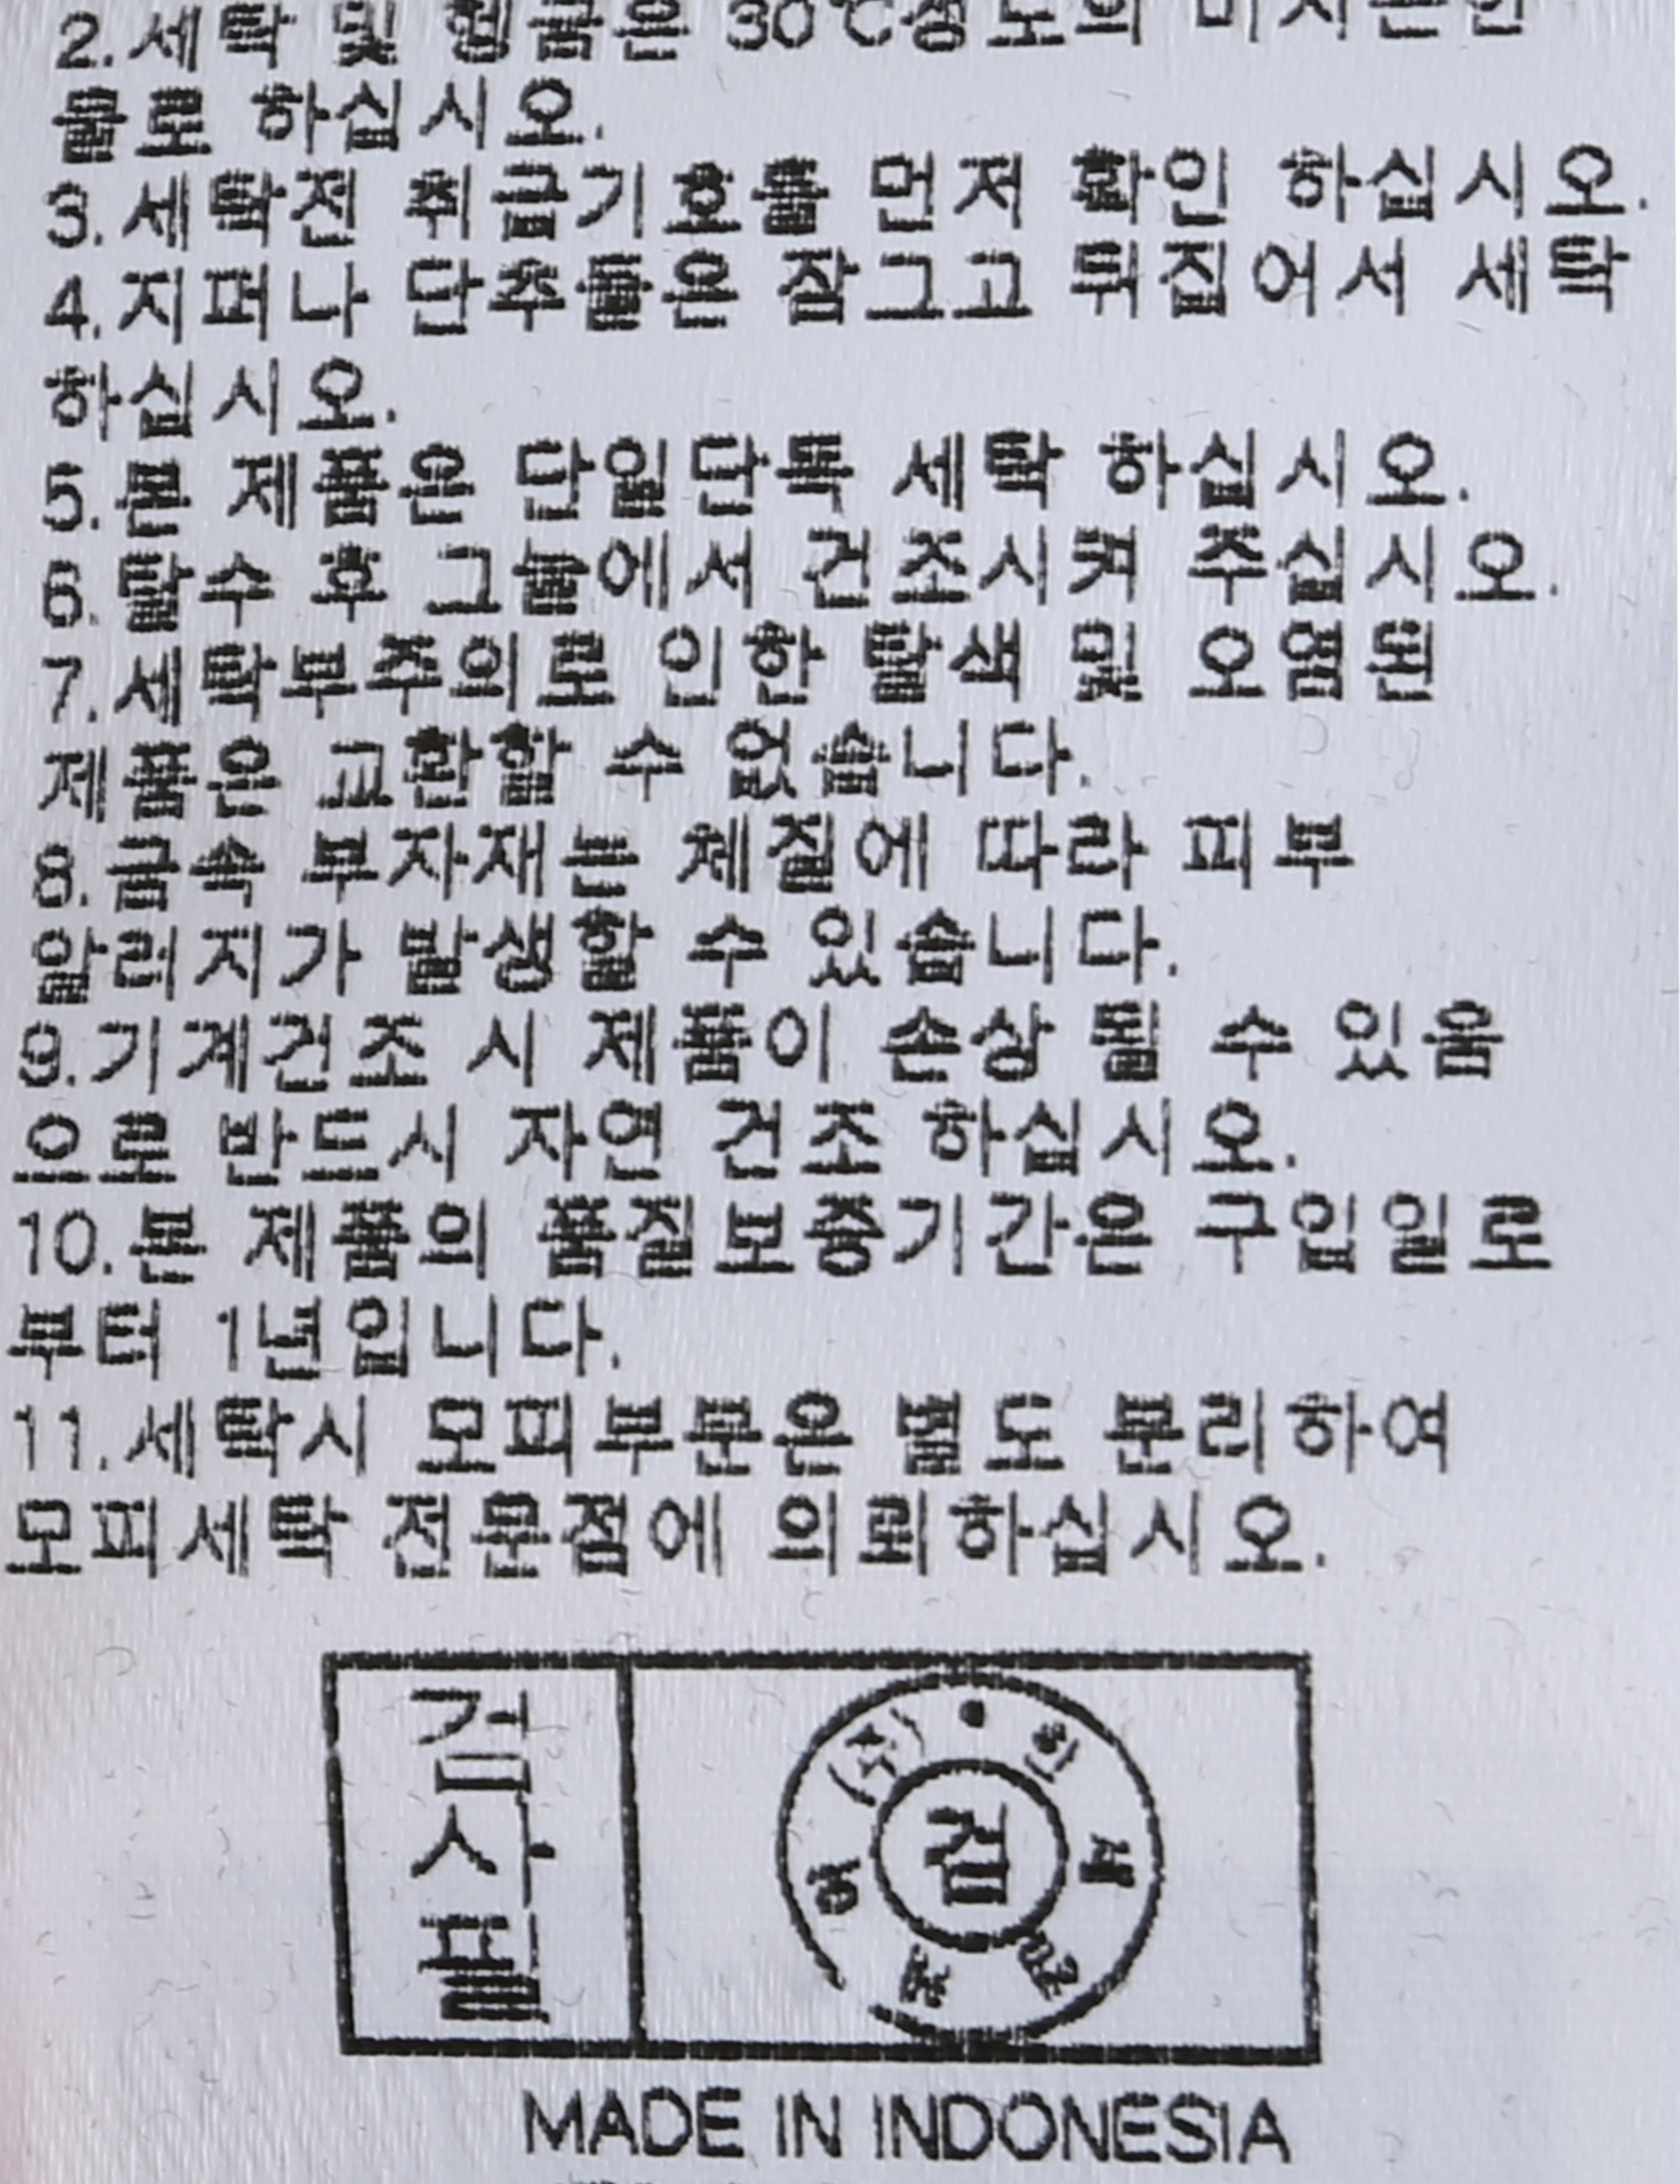 2.세탁 및 헹굼은 30℃정도의 미지근한
물로 하십시오.
3.세탁전 취급기호를 먼저 확인 하십시오.
4.지퍼나 단추들은 잠그고 뒤집어서 세탁
하십시오.
5.본 제품은 단일단독 세탁 하십시오.
6.탈수 후 그늘에서 건조시켜 주십시오.
7.세탁부주의로 인한 탈색 및 오염된
제품은 교환할 수 없습니다.
8.금속 부자재는 체질에 따라 피부
알러지가 발생할 수 있습니다.
9.기계건조 시 제품이 손상 될 수 있음
으로 반드시 자연 건조 하십시오.
10.본 제품의 품질보증기간은 구입일로
부터 1년입니다.
11.세탁시 모피부분은 별도 분리하여
모피세탁 전문점에 의뢰하십시오.
검사필
검
(주) 한세
MADE IN INDONESIA